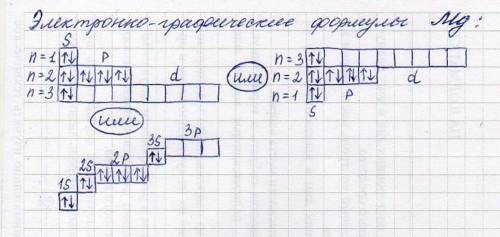 Электронно-графические формулы Mg:
S
n=1 ↑↓ p
n=2 ↑↓ ↑↓ ↑↓ ↑↓ d
n=3 ↑↓
или
n=3 ↑↓
n=2 ↑↓ ↑↓ ↑↓ ↑↓ d
n=1 ↑↓ p
S
или
1S ↑↓
2S ↑↓
2p ↑↓ ↑↓ ↑↓
3S ↑↓
3p